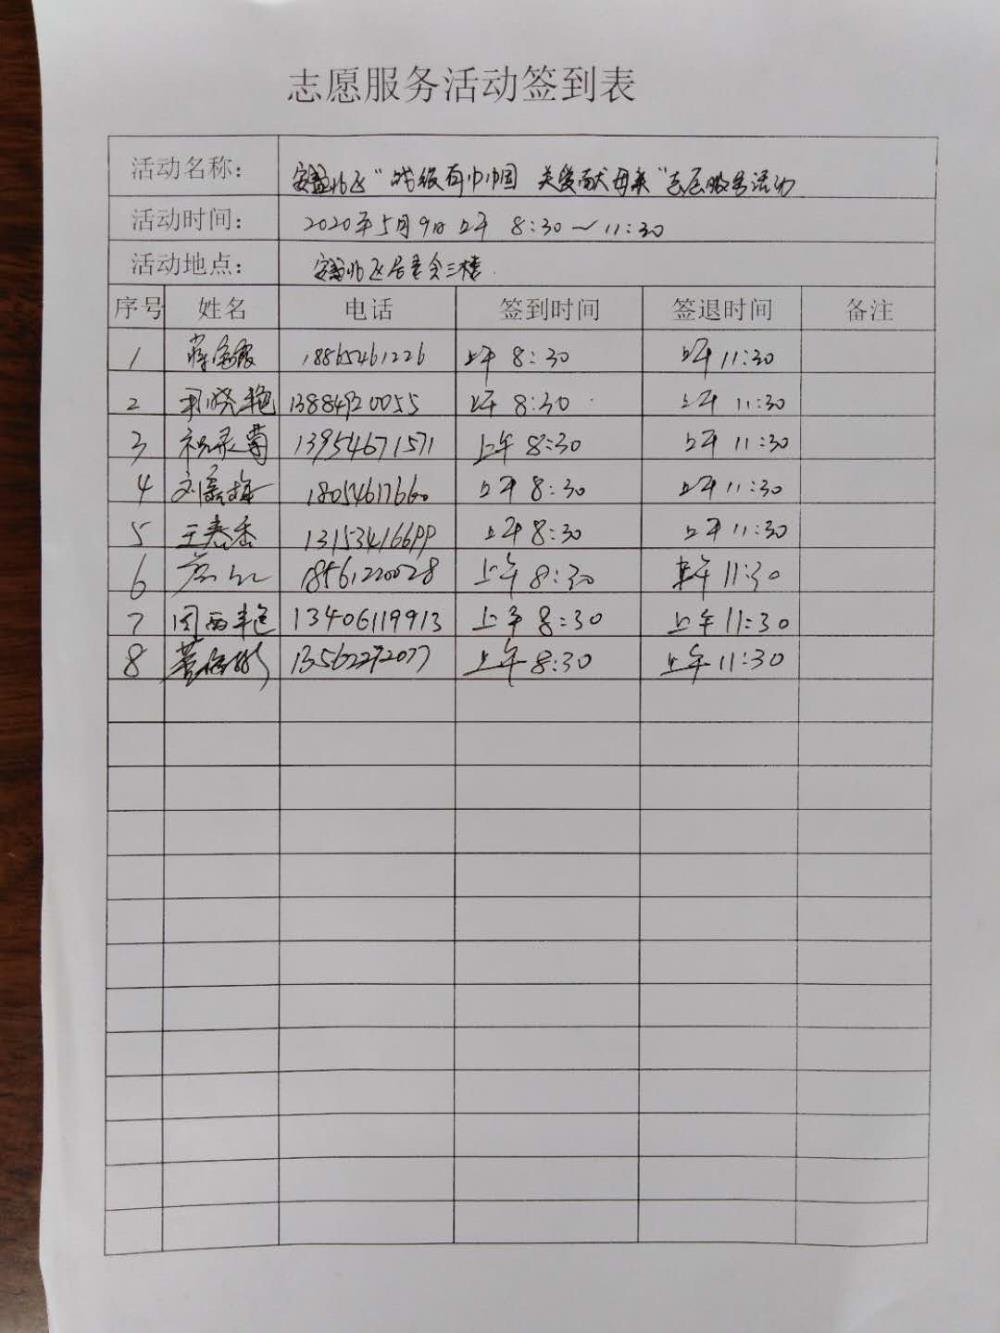 志愿服务活动签到表
活动名称: 安盘北区"战疫有巾帼 关爱献母亲"志愿服务活动
活动时间: 2020年5月9日上午 8:30~11:30
活动地点: 安盘北区居委会三楼.
序号 姓名 电话 签到时间 签退时间 备注
1 18865461226 上午 8:30 上午 11:30
2 晓艳 13884920055 上午 8:30 上午 11:30
3 祝灵菊 13954671571 上午 8:30 上午 11:30
4 刘 梅 18054617660 上午 8:30 上午 11:30
5 王春香 13153416699 上午 8:30 上午 11:30
6 18561220028 上午 8:30 上午 11:30
7 周西艳 13406119913 上午 8:30 上午 11:30
8 13562292077 上午 8:30 上午 11:30